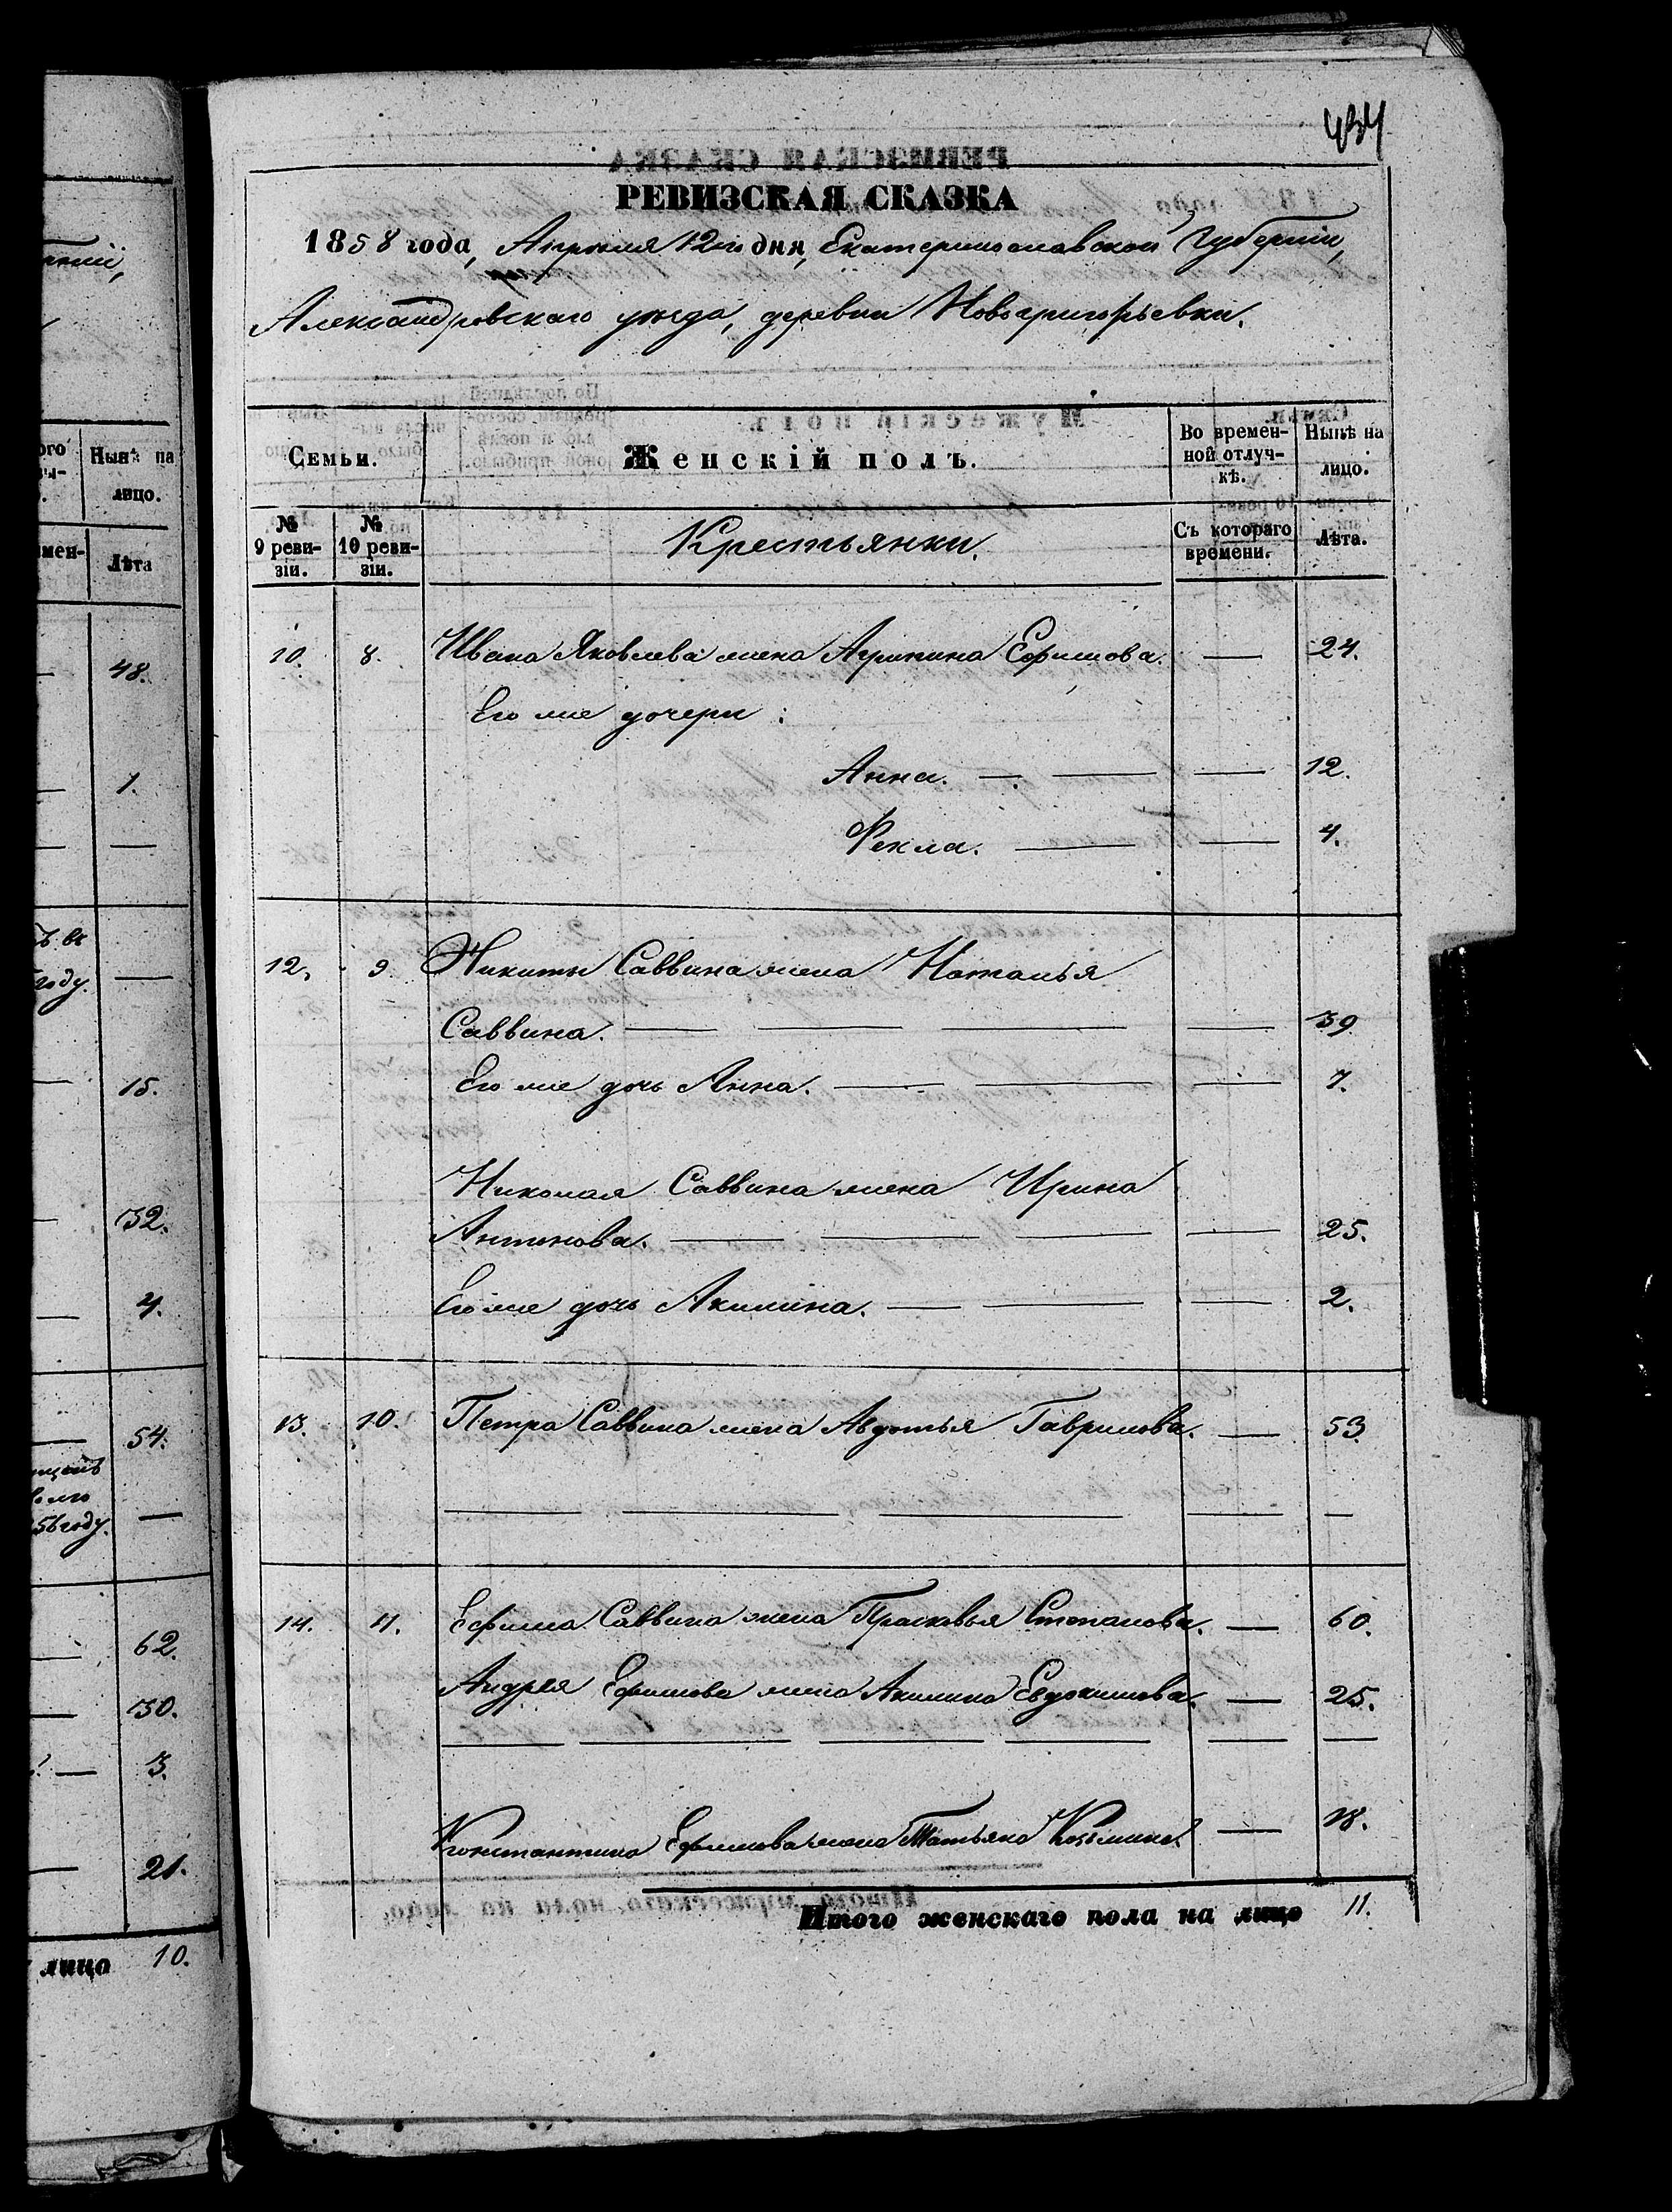 434
РЕВИЗСКАЯ СКАЗКА
1858 года, Апреля 12го дня, Екатеринославской Губерніи,
Александровскаго уезда, деревни Новогригорьевки.
Семьи.
Женскій полъ.
Во времен-
ной отлуч-
кѣ.
Нынѣ на
лицо.
№
9 реви-
зіи.
№
10 реви-
зіи.
Крестьянки.
Съ котораго
времени.
Лѣта.
10. 8. Ивана Яковлева жена Агрипина Ефимова. — 24.
Его же дочери:
Анна. — — — 12.
Фекла. — — 4.
12. 9. Никиты Саввина жена Наталья
Саввина. — — — — 39
Его же дочь Анна. — — — 7.
Николая Саввина жена Ирина
Антонова. — — — — 25.
Его же дочь Акилина. — — — 2.
13. 10. Петра Саввина жена Авдотья Гаврилова. — 53
— — — — —
14. 11. Ефима Саввина жена Прасковья Степанова. — 60.
Андрея Ефимова жена Акилина Евдокимова. — 25.
— — — — — —
Константина Ефимова жена Татьяна Козьмина. — 18.
Итого женскаго пола на лицо 11.
Нынѣ на
лицо.
Лѣта
48.
1.
году.
15.
32.
4.
54.
56 году.
62.
30.
3.
21.
лицо 10.